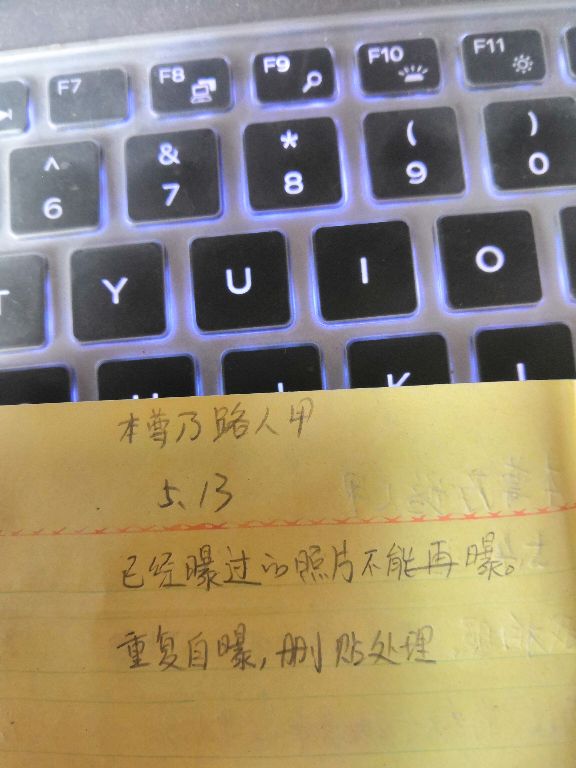 F7 F8 F9 F10 F11
^ & * ( )
6 7 8 9 0
T Y U I O
K L
本尊乃路人甲
5.13
已经曝过的照片不能再曝。
重复自曝,删贴处理